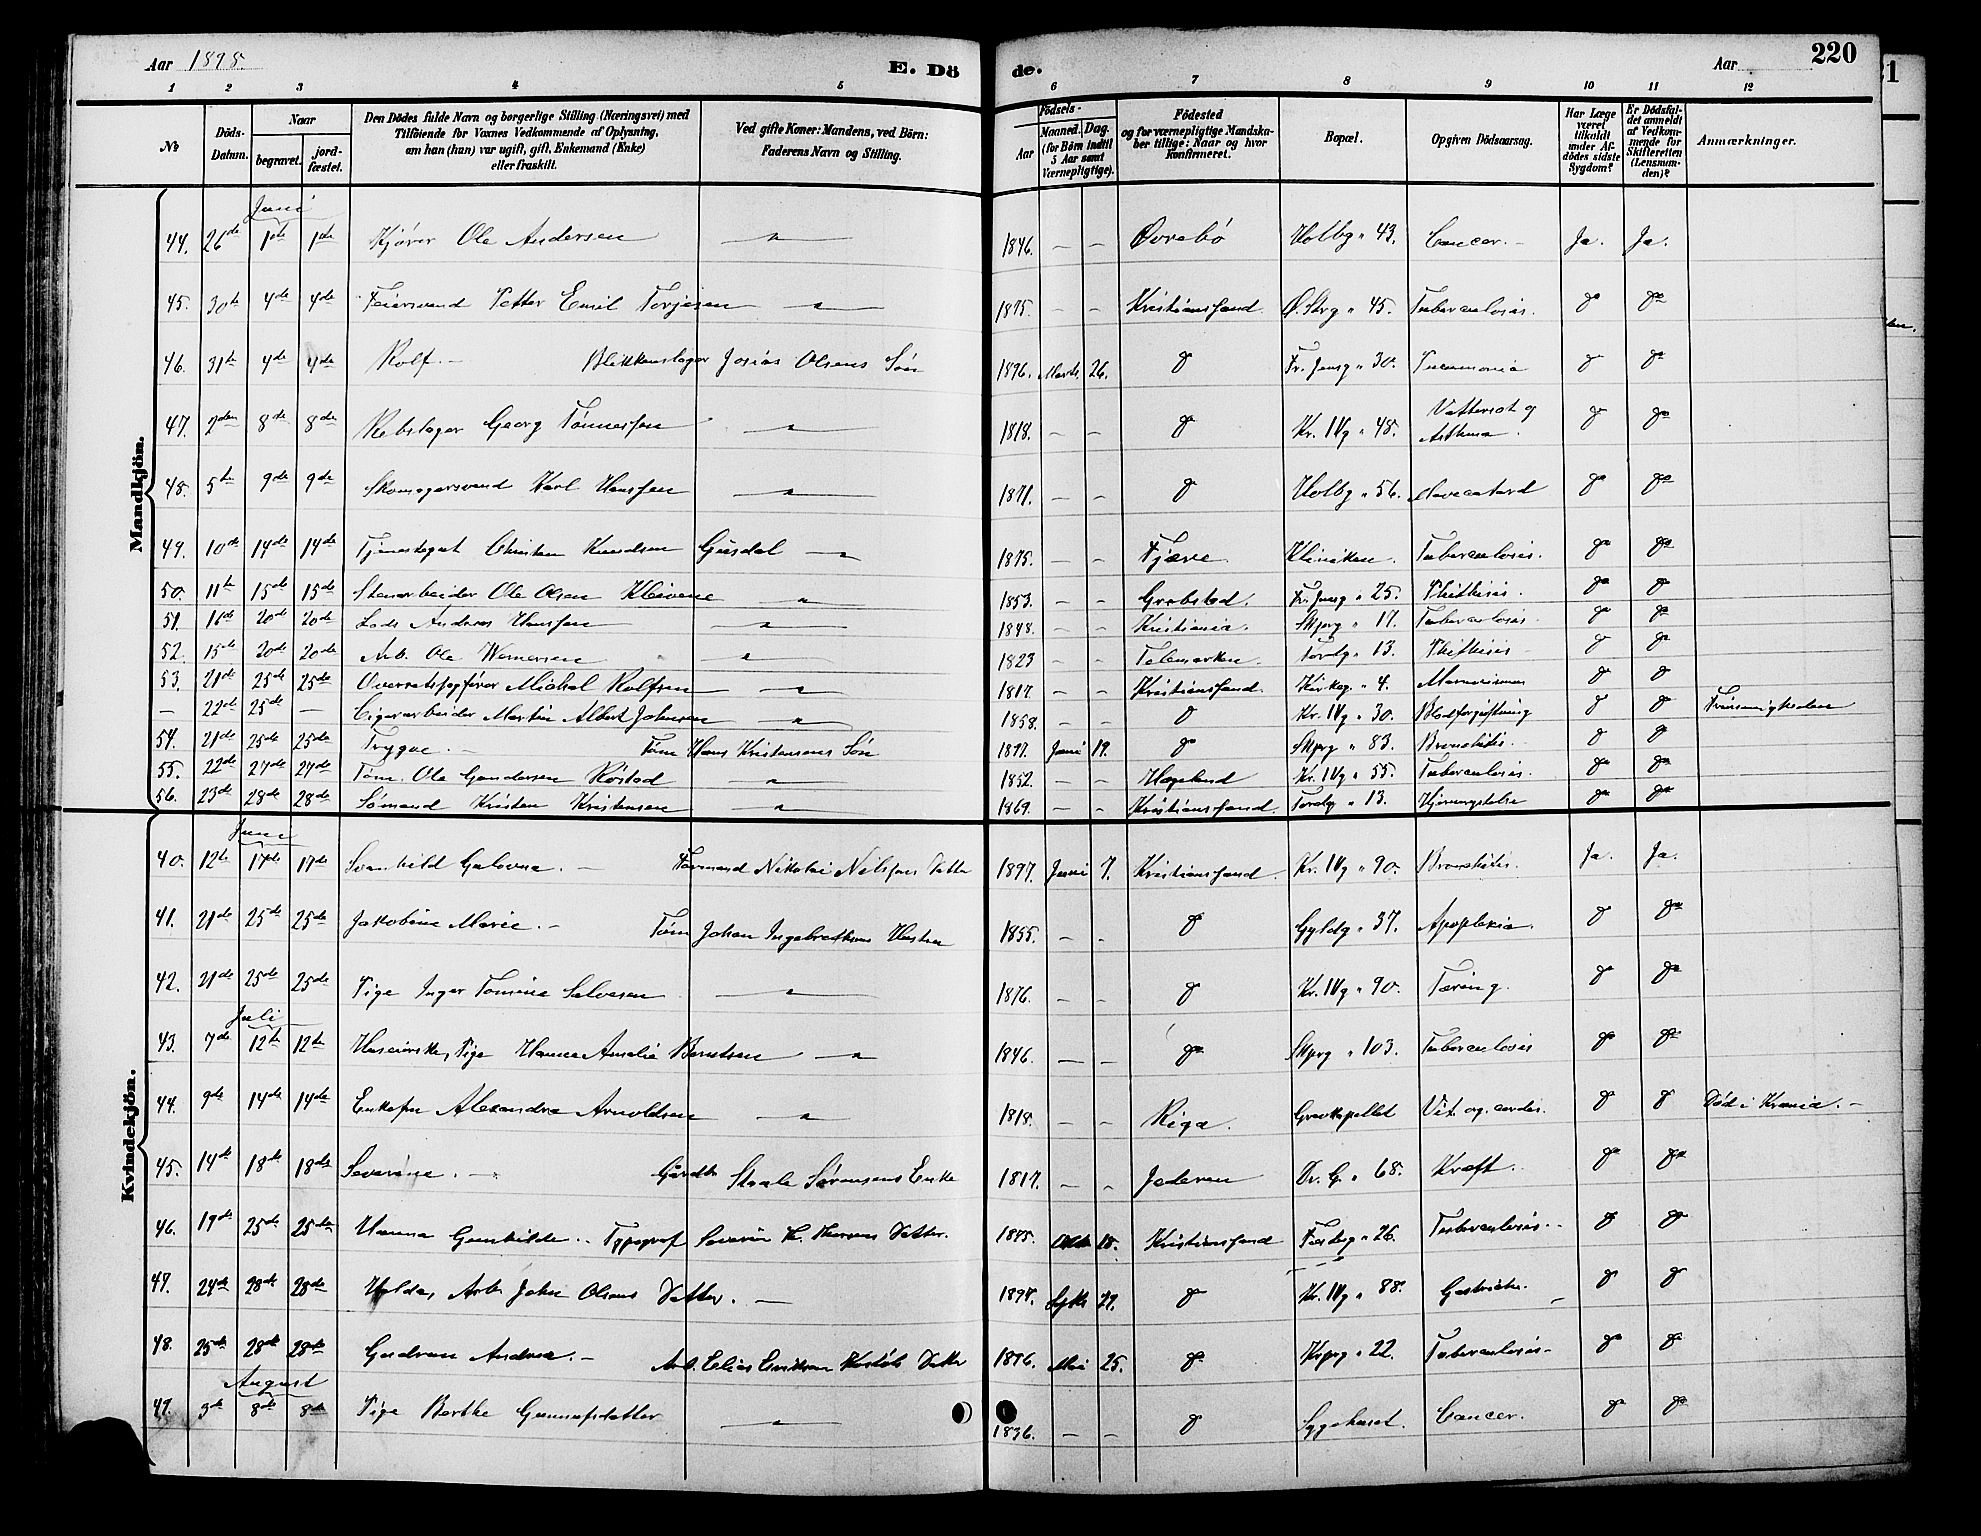 Aar 1898.
E. Dö de.
Aar
220
1 2 3 4 5 6 7 8 9 10 11 12
No
Döds-Datum.
Naar
begravet.
jord-fæstet.
Den Dödes fulde Navn og borgerlige Stilling (Næringsvei) med Tilföiende for Voxnes Vedkommende af Oplysning, om han (hun) var ugift, gift, Enkemand (Enke) eller fraskilt.
Ved gifte Koner: Mandens, ved Börn: Faderens Navn og Stilling.
Födsels-
Aar
Maaned. Dag. (for Börn indtil 5 Aar samt Værnepligtige).
Födested og for værnepligtige Mandska-ber tillige: Naar og hvor konfirmeret.
Bopæl.
Opgiven Dödsaarsag.
Har Læge været tilkaldt under Af-dödes sidste Sygdom?
Er Dödsfal-det anmeldt af Vedkom-mende for Skifteretten (Lensman-den)?
Anmærkninger.
Mandkjön.
Juni
44. 26de 1ste 1ste Kjører Ole Andersen — " — 1846. — — Øvrebø Holbg " 43. Cancer. Ja. Ja.
45. 30te 4de 4de Feiersvend Petter Emil Torjesen — " — 1875. — — Kristianssand. Ø. Strg " 45. Tuberculosis. do do
46. 31te 4de 4de Rolf. — Blikkenslager Josias Olsens Søn 1896. Marts 26. do Fr. Jensg " 30. Pneumonia do do
47. 2den 8de 8de Rebslager Georg Tønnessen — " — 1818. — — do Kr. IVg " 48. Vattersot og Asthma. do do
48. 5te 9de 9de Skomagersvend Karl Hanssen — " — 1871. — — do Holbg " 56. Mavecatard do do
49. 10de 14de 14de Tjenestegut Christen Knudsen Gusdal — " — 1875. — — Fjære Kliniken. Tuberculosis. do do
50. 11te 15de 15de Stenarbeider Ole Olsen Kleivene — " — 1853. — — Grebstad. Fr. Jensg " 25. Phithisis. do do
51. 16de 20de 20de Lods Andreas Hanssen — " — 1848. — — Kristiania. Skprg " 17. Tuberculosis. do do
52. 15de 20de 20de Arb. Ole Wernersen — " — 1823 — — Telemarken. Tordg " 13. Phithisis do do
53. 21de 25de 25de Overretssagfører Michal Rolfsen — " — 1817. — — Kristianssand. Kirkeg. " 4. Marasmus do do
— 22de 25de — Cigararbeider Martin Albert Johnsen — " — 1858. — — do Kr. IVg " 30. Blodforgiftning do do Frimenigheden
54. 21de 25de 25de Trygve. — Tøm. Hans Kristensens Søn 1897. Juni 19. do Skprg " 83. Bronchitis. do do
55. 22de 27de 27de Tøm. Ole Gundersen Røstad — " — 1852. — — Hægeland Kr. IVg " 55. Tuberculosis. do do
56. 23de 28de 28de Sømand Kristen Kristensen — " — 1869. — — Kristianssand. Tordg " 13. do do
Kvindekjön.
Juni
40. 12te 17de 17de Svanhild — Formand Nikolai Nilssens Datter 1897. Juni 7. Kristianssand. Kr. IVg " 90. Bronchitis. Ja. Ja.
41. 21de 25de 25de Jakobine Marie. — Tøm. Johan Ingebretsens Hustru 1855. — — do Gyldg " 37. Apoplexia. do do
42. 21de 25de 25de Pige Inger Tomine Salvesen — " — 1876. — — do Kr. IVg " 90. Tæring. do do
Juli
43. 7de 12te 12te Pige Hanna Amalie Berntsen — " — 1846. — — do Skprg " 103. Tuberculosis do do
44. 9de 14de 14de Enkefru Alexandra Arnoldsen — " — 1818. — — Riga. Gravkapellet Vit. og. cordis. do do Død i Krania. —
45. 14de 18de 18de Severine. — Gårdbr. Staale Sørensens Enke 1817. — — Jæderen Dr. G. " 68. Kræft. do do
46. 19de 25de 25de Hanna Gunhilde. — Typograf Severin Datter. 1895. 18. Kristianssand " 26. Tuberculosis. do do
47. 24de 28de 28de Hulda, Arb. John Olsens Datter. — 1897. Sept. 29. do Kr. IVg " 88. do do
48. 25de 28de 28de Gudrun Andrea. — Arb. Elias Eriksen Datter 1896. Mai 25. do " 22. Tuberculosis do do
August
49. 3de 8de 8de Pige Berthe Gunnufsdatter — " — 1836. — — do Sygehuset. Cancer. do do